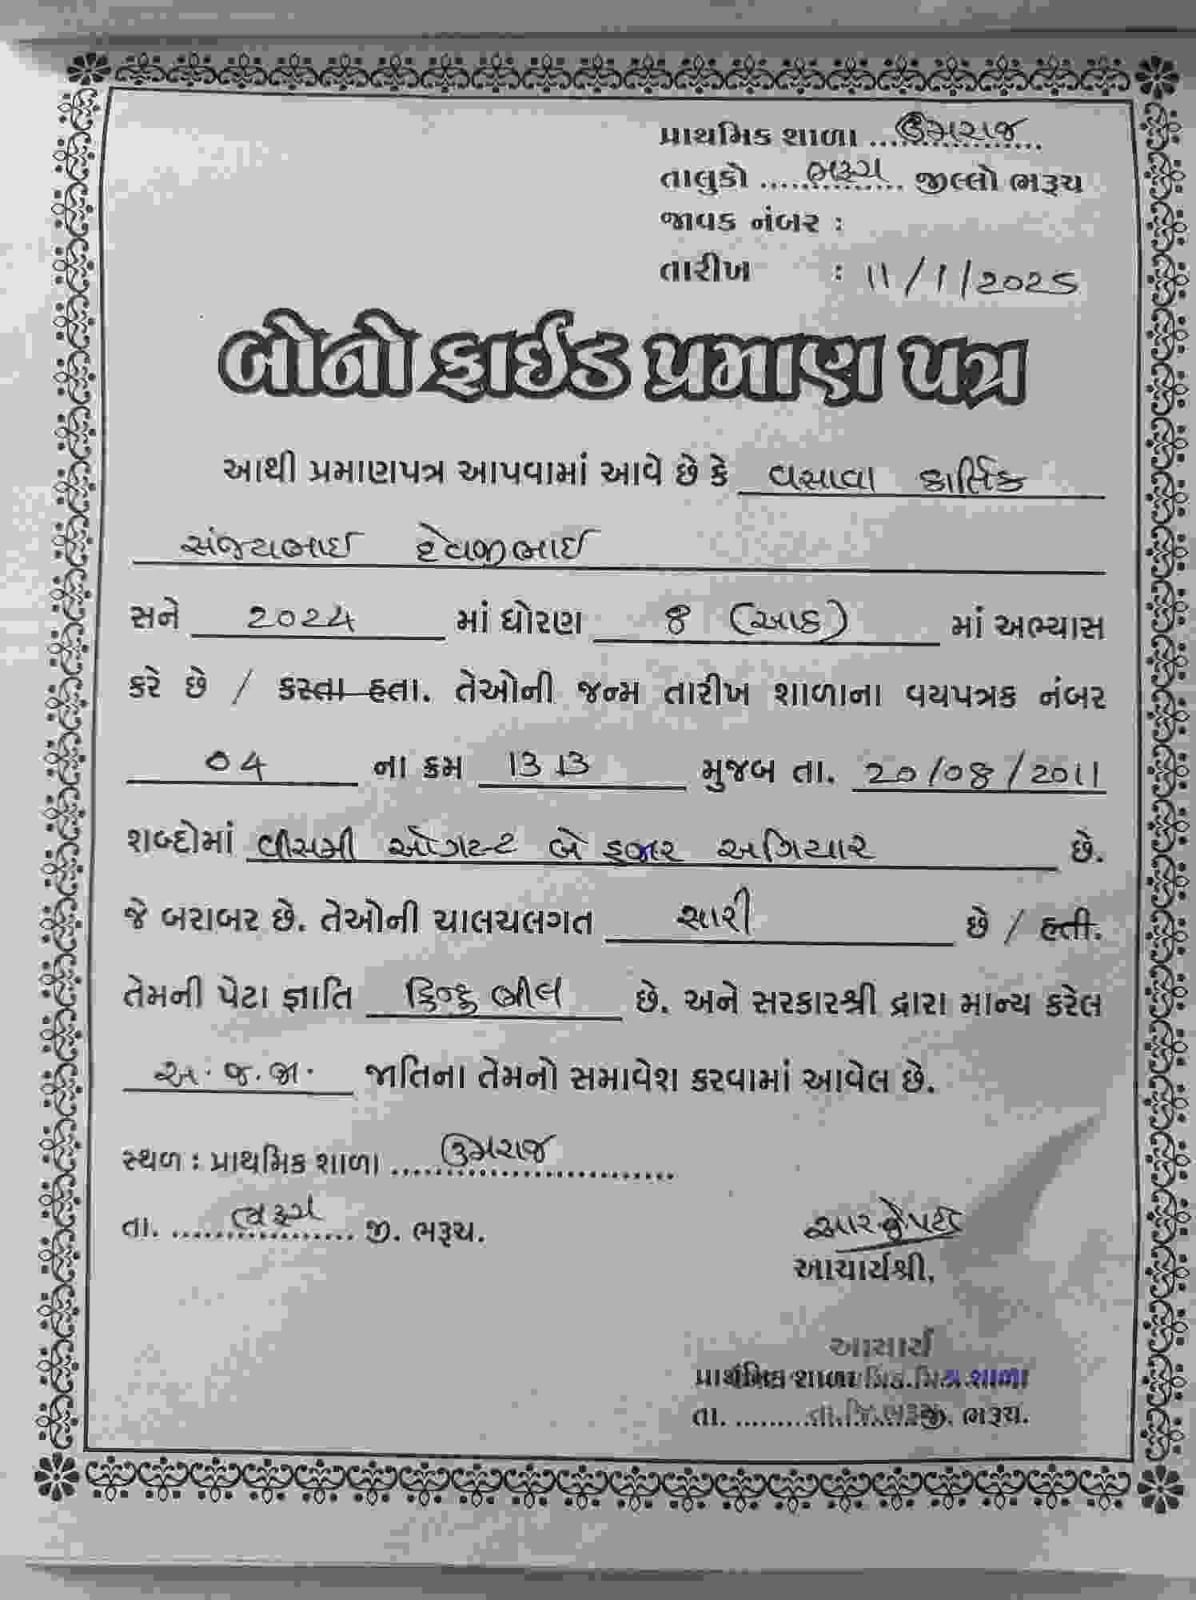 પ્રાથમિક શાળા ....ઉમરાજ....
તાલુકો ....ભરૂચ.... જીલ્લો ભરૂચ
જાવક નંબર :
તારીખ : 11/1/2025
બોનોફાઈડ પ્રમાણ પત્ર
આથી પ્રમાણપત્ર આપવામાં આવે છે કે વસાવા કાર્તિક
સંજયભાઈ દેવજીભાઈ
સને 2024 માં ધોરણ 8 (આઠ) માં અભ્યાસ
કરે છે / કરતા હતા. તેઓની જન્મ તારીખ શાળાના વયપત્રક નંબર
04 ના ક્રમ 1313 મુજબ તા. 20/08/2011
શબ્દોમાં વીસમી ઓગસ્ટ બે હજાર અગિયાર છે.
જે બરાબર છે. તેઓની ચાલચલગત સારી છે / હતી.
તેમની પેટા જ્ઞાતિ હિન્દુ ભીલ છે. અને સરકારશ્રી દ્રારા માન્ય કરેલ
અ.જ.જા. જાતિના તેમનો સમાવેશ કરવામાં આવેલ છે.
સ્થળ : પ્રાથમિક શાળા ....ઉમરાજ....
તા. ....ભરૂચ.... જી. ભરૂચ.
આચાર્યશ્રી,
આચાર્ય
પ્રાથમિક શાળા મિશ્ર શાળા
તા. ......... જી. ભરૂચ.